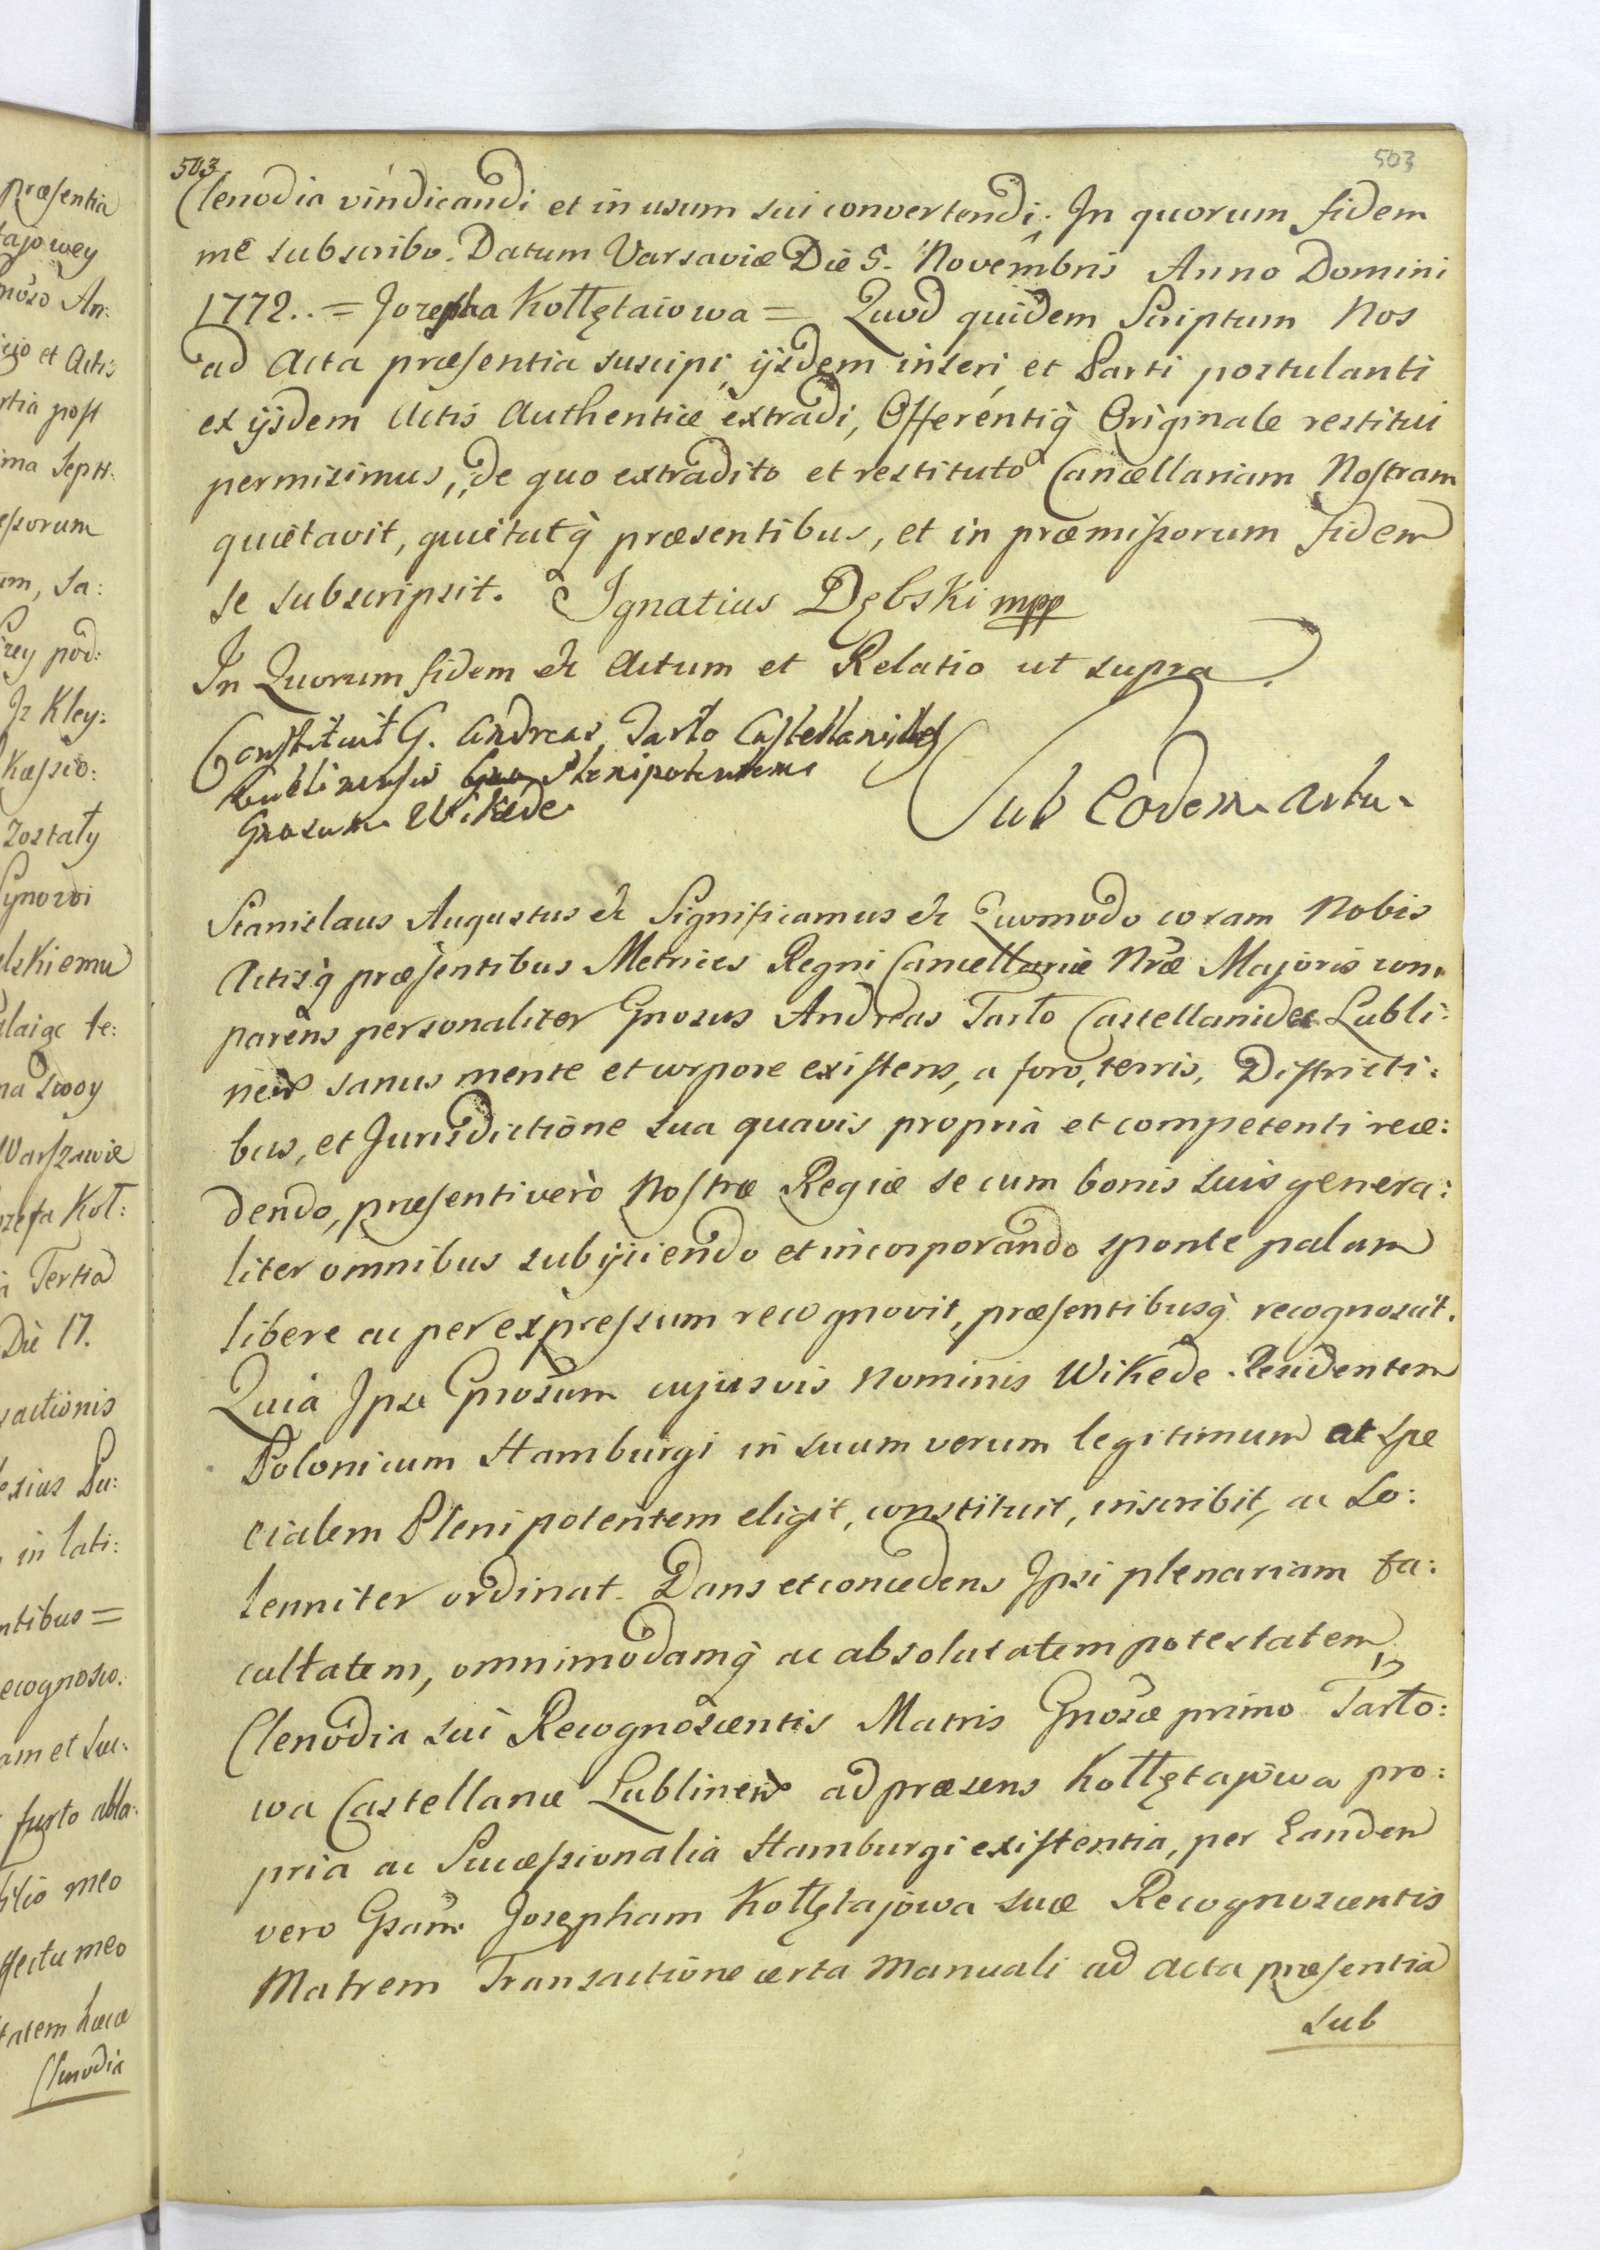 503
503
Clenodia vindicandi et in usum sui convertendi; In quorum fidem
me subscribo. Datum Varsaviæ Die 5. Novembris Anno Domini
1772.. = Jozepha Kołłętaiowa = Quod quidem Scriptum Nos
ad Acta præsentia suscipi, ijsdem inseri, et Parti postulanti
ex ijsdem Actis Authentice extradi, Offerentiq̀ Originale restitui
permisimus, de quo extradito et restituto Cancellariam Nostram
quietavit, quietatq̀ præsentibus, et in præmissorum fidem
se subscripsit. Ignatius Dębski mpp
In Quorum fidem etc Actum et Relatio ut supra
Constituit G. Andreas Tarło Castellanides
Lublinensis Plenipotentem
Gnosum Wikede
Sub Eodem Actu
Stanislaus Augustus etc Significamus etc Quomodo coram Nobis
Actisq̀ præsentibus Metrices Regni Cancellariæ Nræ Majoris com
parens personaliter Gnosus Andreas Tarło Castellanides Lubli:
nen sanus mente et corpore existens, a foro, terris, Districti:
bus, et Jurisdictione sua quavis propria et competenti rece:
dendo, præsenti vero Nostræ Regiæ se cum bonis suis genera:
liter omnibus subijciendo et incorporando sponte palam
libere ac per expressum recognovit, præsentibusq̀ recognoscit.
Quia Ipse Gnosum cujusvis Nominis Wikede Residentem
Polonicum Hamburgi in suum verum legitimum at spe
cialem Plenipotentem eligit, constituit, inscribit, ac So:
lenniter ordinat. Dans et concedens Ipsi plenariam fa:
cultatem, omnimodamq̀ ac absolutatem potestatem
Clenodia sui Recognoscentis Matris Gnosæ primo Tarło:
wa Castellanæ Lublinen ad præsens Kołłętajowa pro:
pria ac Successionalia Hamburgi existentia, per Eandem
vero Gsam Jozepham Kołłętajowa suæ Recognoscentis
Matrem Transactione certa Manuali ad Acta præsentia
sub